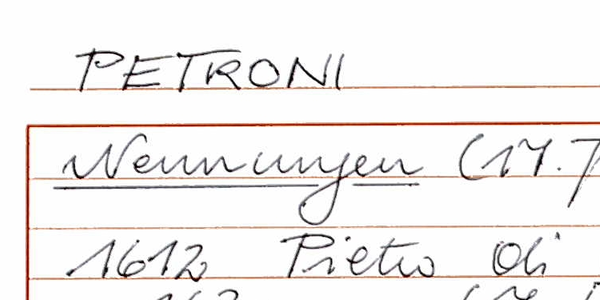 PETRONI
Nennungen (17.
1612 Pietro di